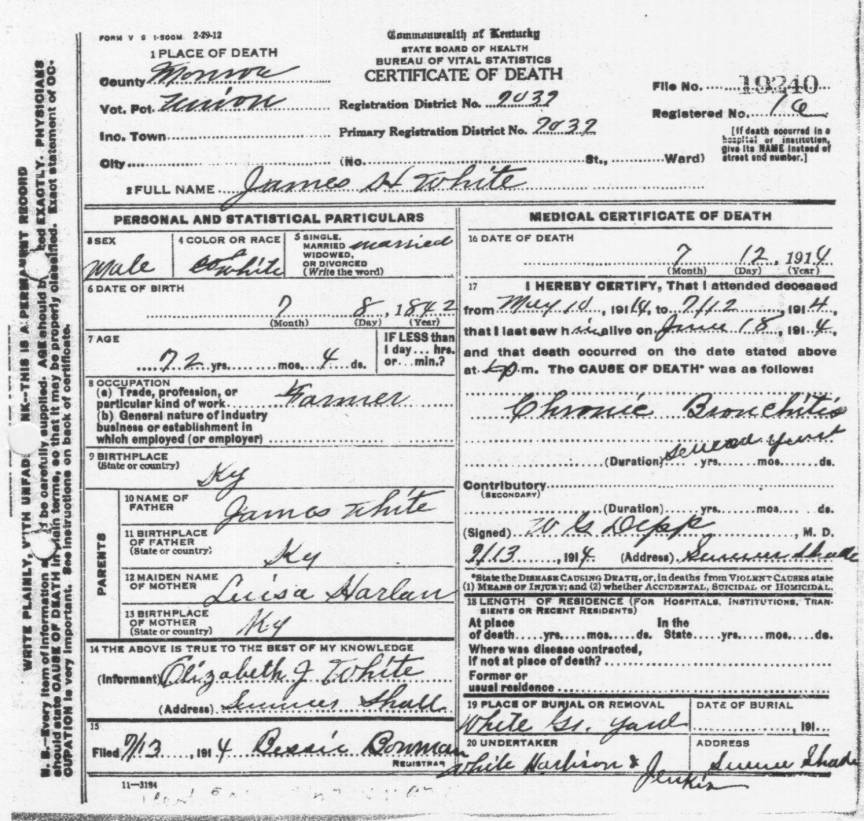 FORM V S 1-500M 2-29-12
Commonwealth of Kentucky
STATE BOARD OF HEALTH
BUREAU OF VITAL STATISTICS
CERTIFICATE OF DEATH
1 PLACE OF DEATH
County Monroe
Vot. Pct. Union
Inc. Town
City (No. St., Ward)
Registration District No. 2032
Primary Registration District No. 2032
File No. 19240
Registered No. 16
[If death occurred in a
hospital or institution,
give its NAME instead of
street and number.]
2 FULL NAME James H White
PERSONAL AND STATISTICAL PARTICULARS
3 SEX
Male
4 COLOR OR RACE
White
5 SINGLE,
MARRIED
WIDOWED,
OR DIVORCED
(Write the word)
married
6 DATE OF BIRTH
7 8, 1842
(Month) (Day) (Year)
7 AGE
72 yrs. mos. 4 ds.
IF LESS than
1 day... hrs.
or... min.?
8 OCCUPATION
(a) Trade, profession, or
particular kind of work Farmer
(b) General nature of industry
business or establishment in
which employed (or employer)
9 BIRTHPLACE
(State or country)
Ky
PARENTS
10 NAME OF
FATHER
James White
11 BIRTHPLACE
OF FATHER
(State or country)
Ky
12 MAIDEN NAME
OF MOTHER
Luisa Harlan
13 BIRTHPLACE
OF MOTHER
(State or country)
Ky
14 THE ABOVE IS TRUE TO THE BEST OF MY KNOWLEDGE
(Informant) Elizabeth J White
(Address) Summer Shall
15
Filed 7/13, 1914 Bessie Bowman
REGISTRAR
11—3184
MEDICAL CERTIFICATE OF DEATH
16 DATE OF DEATH
7 12, 1914
(Month) (Day) (Year)
17 I HEREBY CERTIFY, That I attended deceased
from May 10, 1914, to 7/12 1914,
that I last saw him alive on June 18, 1914,
and that death occurred on the date stated above
at m. The CAUSE OF DEATH* was as follows:
Chronic Bronchitis
(Duration) yrs. mos. ds.
Contributory
(SECONDARY)
(Duration) yrs. mos. ds.
(Signed) W G Depp, M. D.
7/13, 1914 (Address) Summer Shade
*State the DISEASE CAUSING DEATH, or, in deaths from VIOLENT CAUSES state
(1) MEANS OF INJURY; and (2) whether ACCIDENTAL, SUICIDAL or HOMICIDAL.
18 LENGTH OF RESIDENCE (FOR HOSPITALS, INSTITUTIONS, TRAN-
SIENTS OR RECENT RESIDENTS)
At place In the
of death yrs. mos. ds. State yrs. mos. ds.
Where was disease contracted,
if not at place of death?
Former or
usual residence
19 PLACE OF BURIAL OR REMOVAL
White Gr. Yard
DATE OF BURIAL
, 191
20 UNDERTAKER
White Harbison & Jenkins
ADDRESS
Summer Shade
WRITE PLAINLY, WITH UNFAD NK—THIS IS A PERMANENT RECORD
N. B.—Every item of information be carefully supplied. AGE should b ted EXACTLY. PHYSICIANS
should state CAUSE OF DEATH in plain terms, so that it may be properly classified. Exact statement of OC-
CUPATION is very important. See instructions on back of certificate.